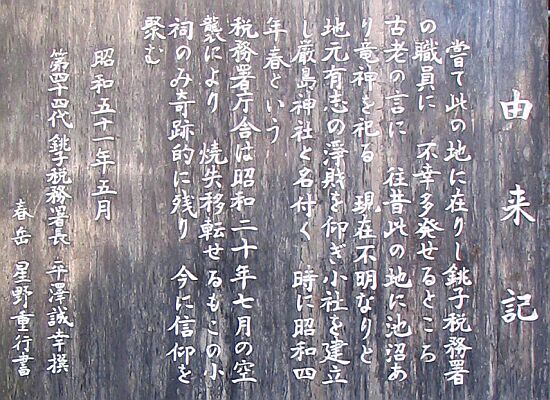 由来記
嘗て此の地に在りし銚子税務署
の職員に 不幸多発せるところ
古老の言に 往昔此の地に池沼あ
り竜神を祀る 現在不明なりと
地元有志の浄財を仰ぎ小社を建立
し厳島神社と名付く 時に昭和四
年春という
税務署庁舎は昭和二十年七月の空
襲により 焼失移転せるもこの小
祠のみ奇跡的に残り 今に信仰を
聚む
昭和五十一年五月
第四十四代 銚子税務署長 平澤誠幸 撰
春岳 星野重行書